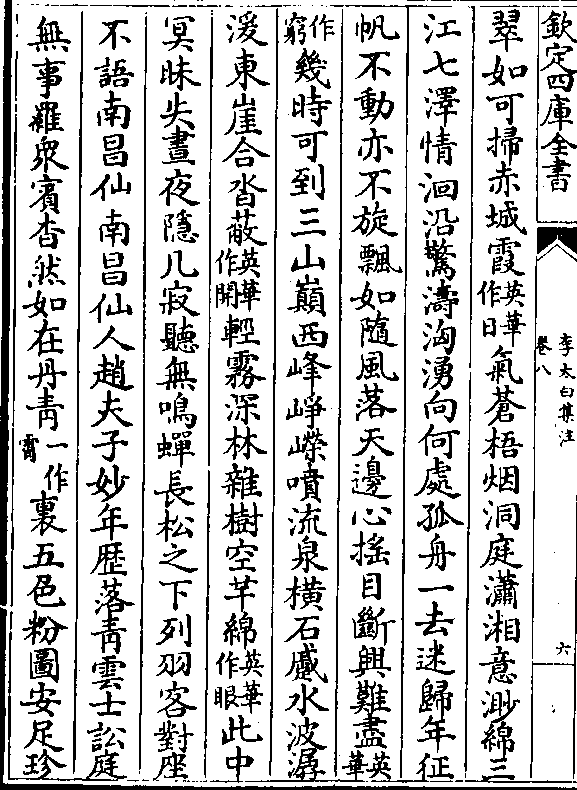 欽定四庫全書
李太白集注
卷八
六
翠如可掃赤城霞英華作日氣蒼梧烟洞庭瀟湘意渺綿三
江七澤情洄沿驚濤洶湧向何處孤舟一去迷歸年征
帆不動亦不旋飄如隨風落天邊心搖目斷興難盡英華
作窮幾時可到三山巔西峰崢嶸噴流泉橫石蹙水波潺
湲東崖合沓蔽英華作開輕霧深林雜樹空芊綿英華作眼此中
冥昧失晝夜隱几寂聽無鳴蟬長松之下列羽客對座
不語南昌仙南昌仙人趙夫子妙年歷落青雲士訟庭
無事羅衆賓杳然如在丹青一作霄裏五色粉圖安足珍